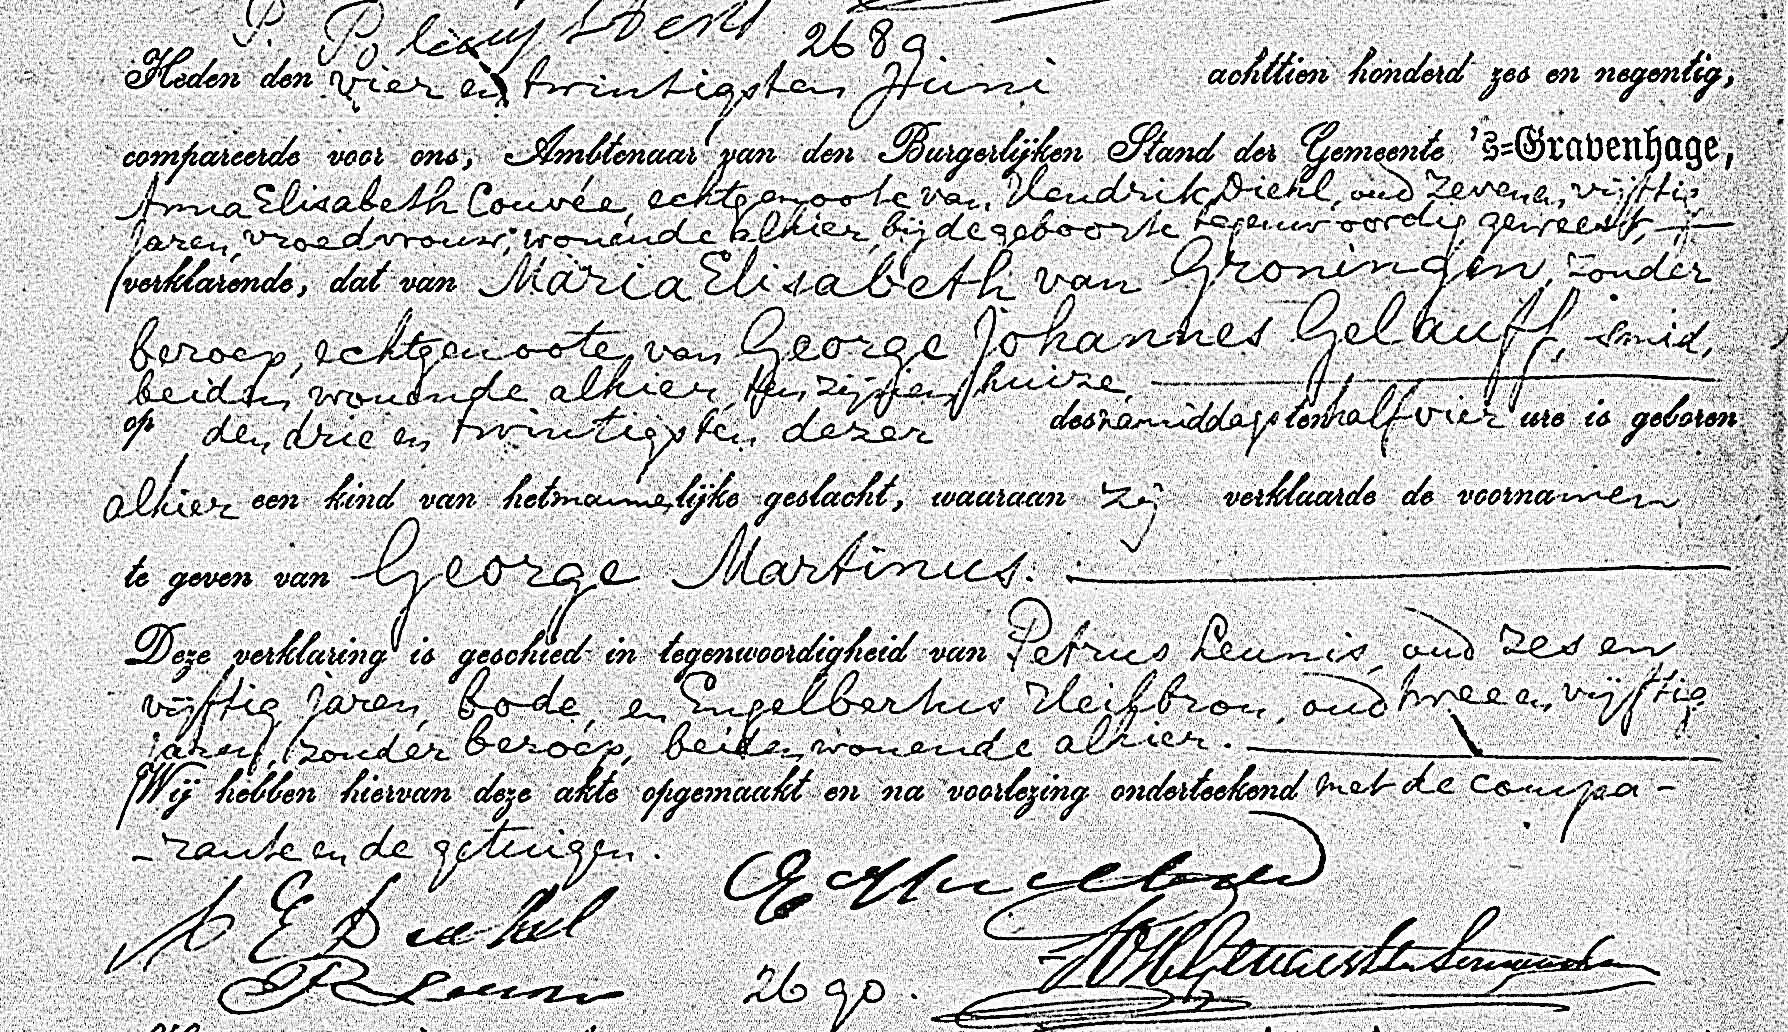 2689
Heden den vier en twintigsten Juni achttien honderd zes en negentig,
compareerde voor ons, Ambtenaar van den Burgerlijken Stand der Gemeente 's=Gravenhage,
Anna Elisabeth Couvée, echtgenoote van Hendrik Diehl, oud zeven en vijftig
jaren, vroedvrouw, wonende alhier, bij de geboorte tegenwoordig geweest,
verklarende, dat van Maria Elisabeth van Groningen, zonder
beroep, echtgenoote van George Johannes Gelauff, smid,
beiden wonende alhier, ten zijnen huize
op den drie en twintigsten dezer des namiddags ten half vier ure is geboren
alhier een kind van het mannelijke geslacht, waaraan zij verklaarde de voornamen
te geven van George Martinus.
Deze verklaring is geschied in tegenwoordigheid van Petrus Leunis, oud zes en
vijftig jaren, bode, en Engelbertus Heilbron, oud twee en vijftig
jaren, zonder beroep, beiden wonende alhier.
Wij hebben hiervan deze akte opgemaakt en na voorlezing onderteekend met de compa-
-rante en de getuigen.
2690.